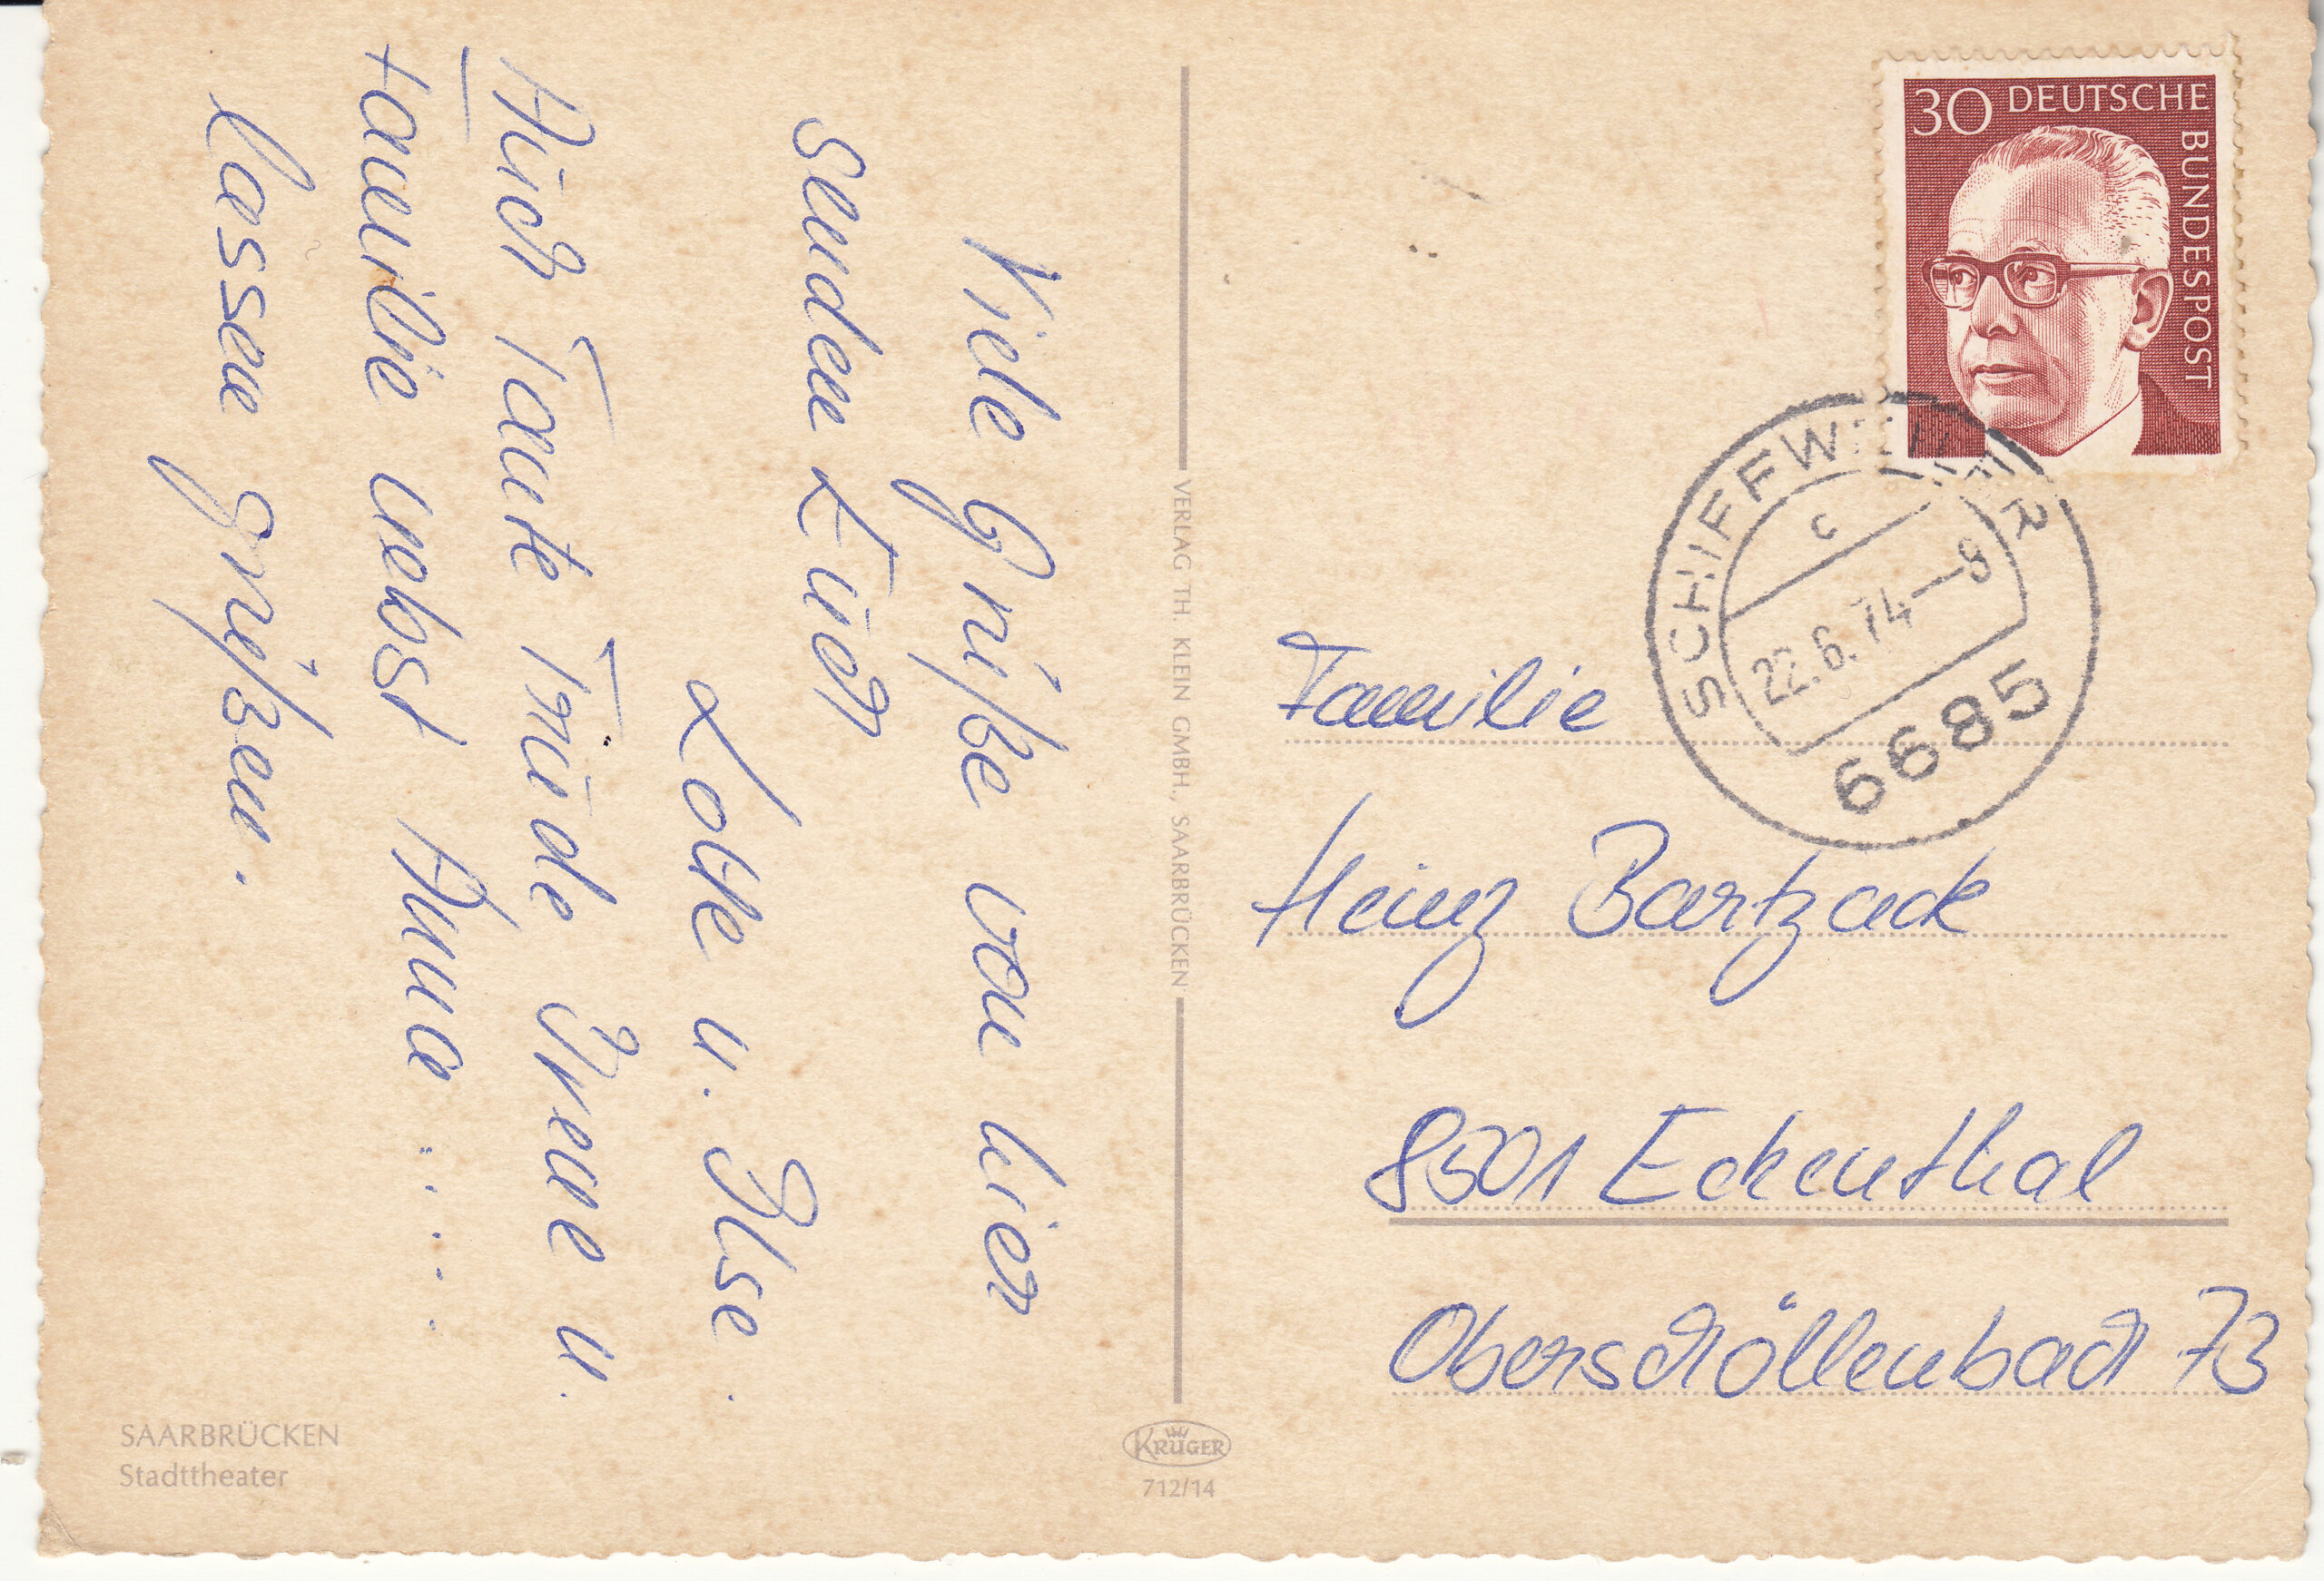 Viele Grüße von hier
senden Euch
Lotte u. Ilse.
Auch Tante Trude Irene u.
Familie nebst Anna .....
lassen grüßen.
VERLAG TH. KLEIN GMBH., SAARBRÜCKEN
30 DEUTSCHE
BUNDESPOST
SCHIFFWEILER
c
22.6.74-8
6685
Familie
Heinz Bartzack
8501 Eckenthal
Oberschöllenbach 73
SAARBRÜCKEN
Stadttheater
KRÜGER
712/14